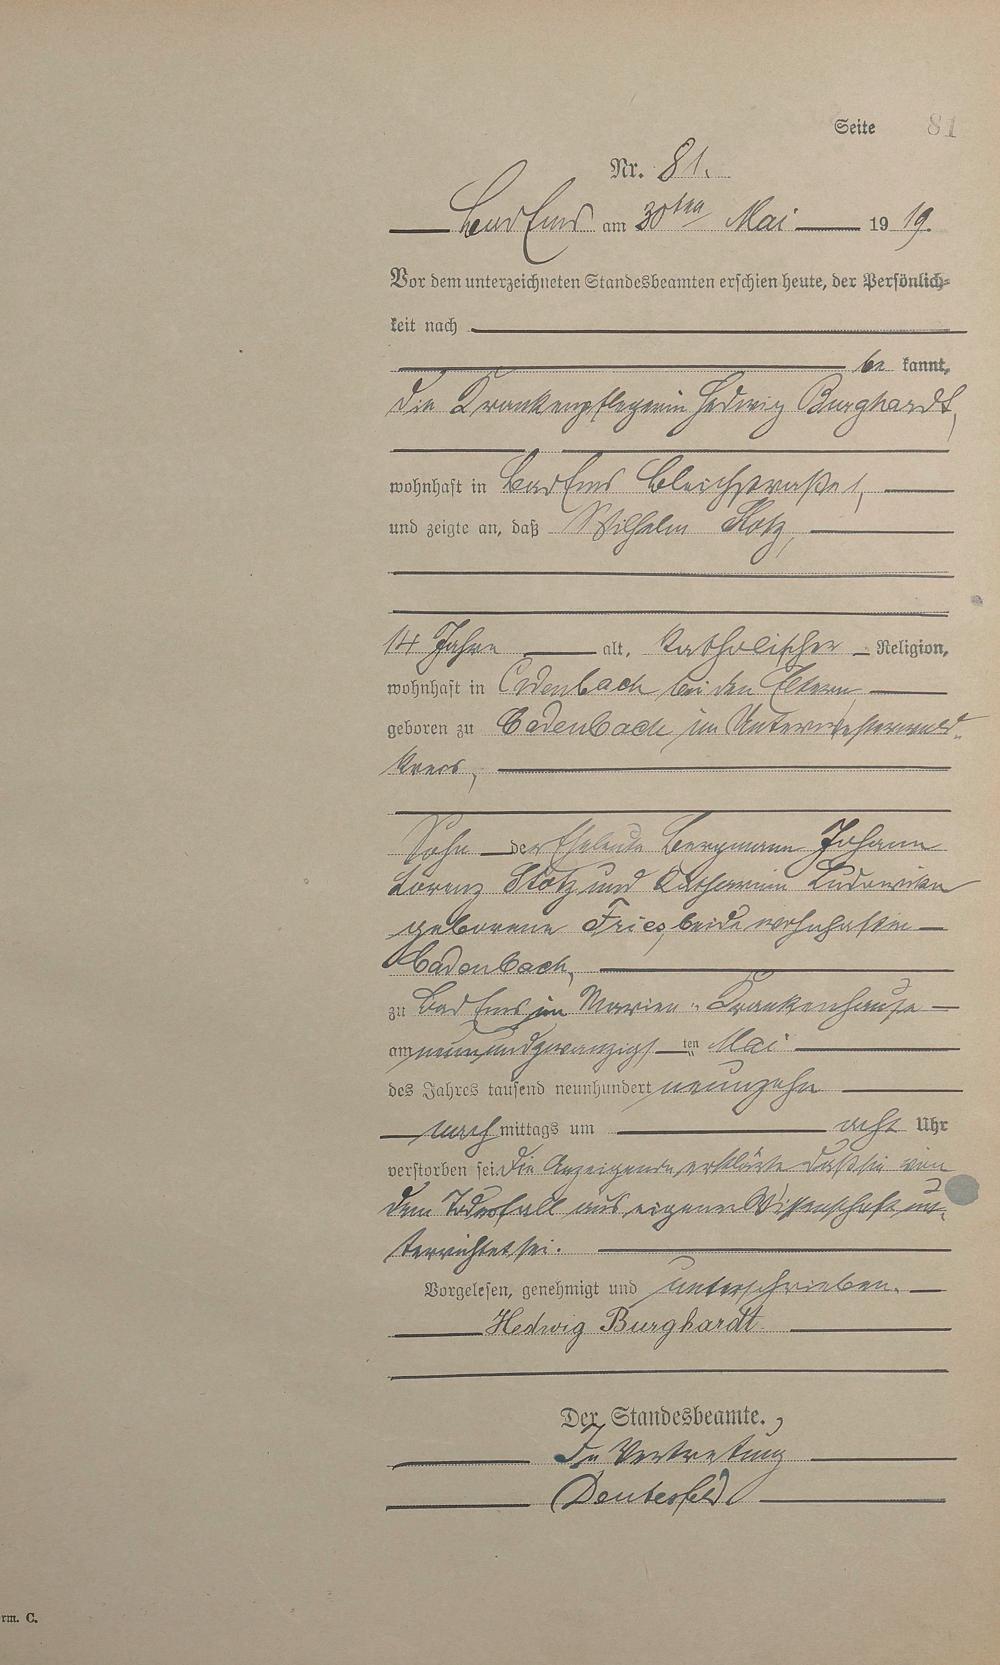 Seite 81
Nr. 81.
Bad Ems am 30ten Mai 1919.
Vor dem unterzeichneten Standesbeamten erschien heute, der Persönlich-
keit nach
be kannt,
die Krankenpflegerin Hedwig Burghardt,
wohnhaft in Bad Ems Bleichstraße 1,
und zeigte an, daß Wilhelm Klotz,
14 Jahre alt, katholischer Religion,
wohnhaft in Cadenbach bei den Eltern
geboren zu Cadenbach im Unterwesterwald-
kreis,
Sohn der Eheleute Bergmann Johann
Lorenz Klotz und Katharina Ludowika
geborene Fries, beide wohnhaft in
Cadenbach,
zu Bad Ems im Marien-Krankenhause
am neunundzwanzigsten Mai
des Jahres tausend neunhundert neunzehn
nachmittags um acht Uhr
verstorben sei. Die Anzeigende erklärte daß sie von
dem Todesfall aus eigener Wissenschaft un-
terrichtet sei.
Vorgelesen, genehmigt und unterschrieben.
Hedwig Burghardt
Der Standesbeamte.,
In Vertretung
rm. C.